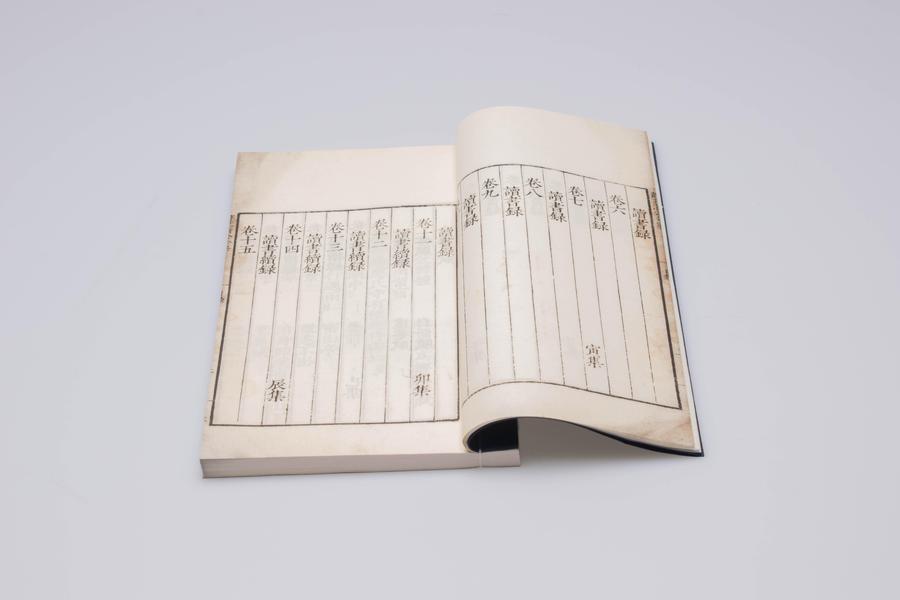 讀書録
卷六
讀書録
卷七 寅集
讀書録
卷八
讀書録
卷九
讀書録
讀書録
卷十一 卯集
讀書續録
卷十二
讀書續録
卷十三
讀書續録
卷十四 辰集
讀書續録
卷十五